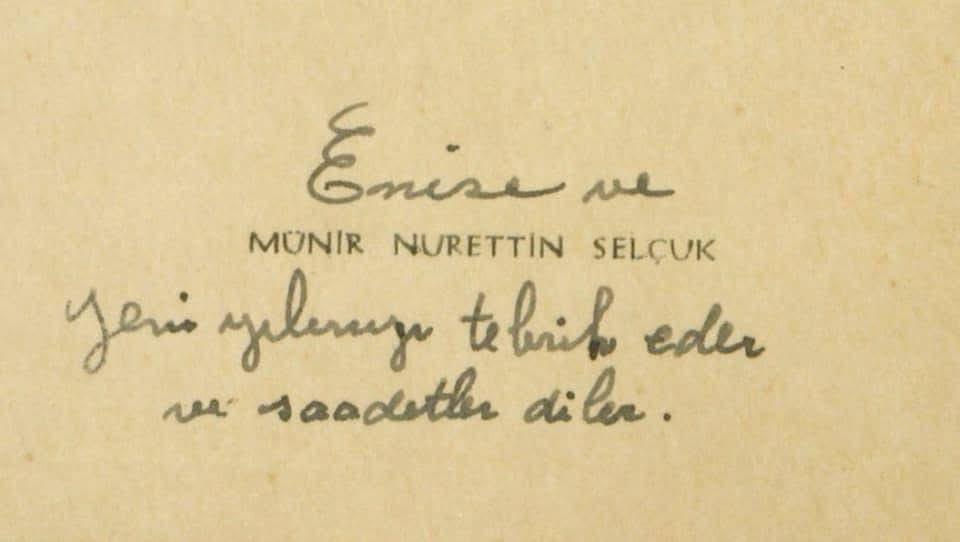 Enise ve
MÜNİR NURETTİN SELÇUK
Yeni yılınızı tebrik eder
ve saadetler diler.